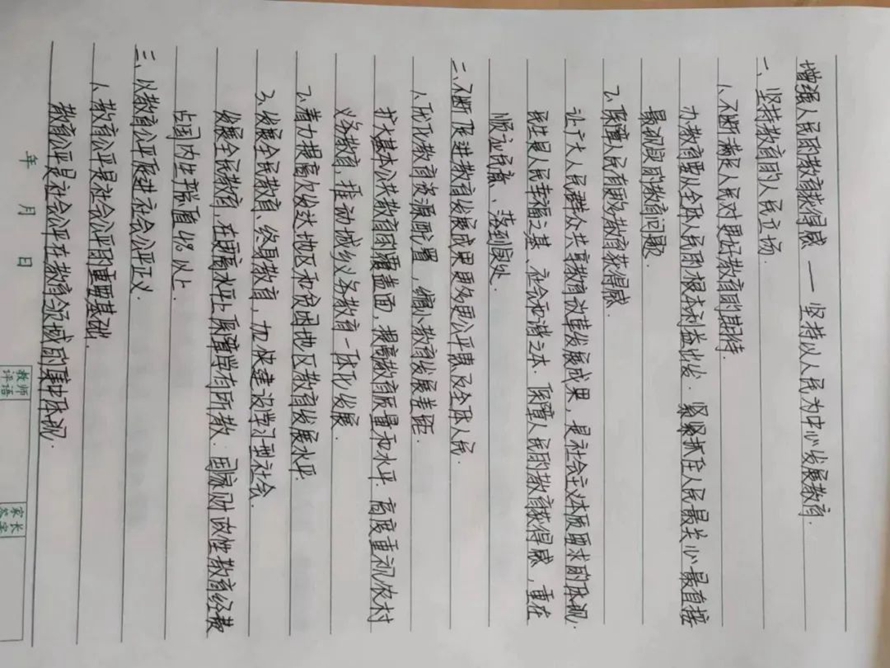 增强人民的教育获得感 —— 坚持以人民为中心发展教育.
一、坚持教育的人民立场.
1、不断满足人民对更好教育的期待.
办教育要从全体人民的根本利益出发. 紧紧抓住人民最关心最直接
最现实的教育问题.
2、保障人民有更多教育获得感.
让广大人民群众共享教育改革发展成果, 是社会主义本质要求的体现.
民生是人民幸福之基、社会和谐之本. 保障人民的教育获得感, 重在
顺应民意、落到实处.
二、不断促进教育发展成果更多更公平惠及全体人民.
1、优化教育资源配置, 缩小教育发展差距.
扩大基本公共教育的覆盖面, 提高教育质量和水平. 高度重视农村
义务教育, 推动城乡义务教育一体化发展.
2、着力提高欠发达地区和贫困地区教育发展水平
3、发展全民教育、终身教育, 加快建设学习型社会.
发展全民教育, 在更高水平上保障学有所教. 国家财政性教育经费
占国内生产总值4%以上.
三、以教育公平促进社会公平正义.
1、教育公平是社会公平的重要基础.
教育公平是社会公平在教育领域的集中体现.
年 月 日
教师评语
家长签字